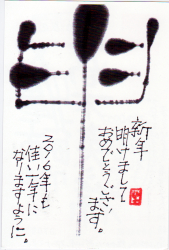 申
新年
明けまして
おめでとうござい
ます。
2016年も
佳い一年に
なりますように。